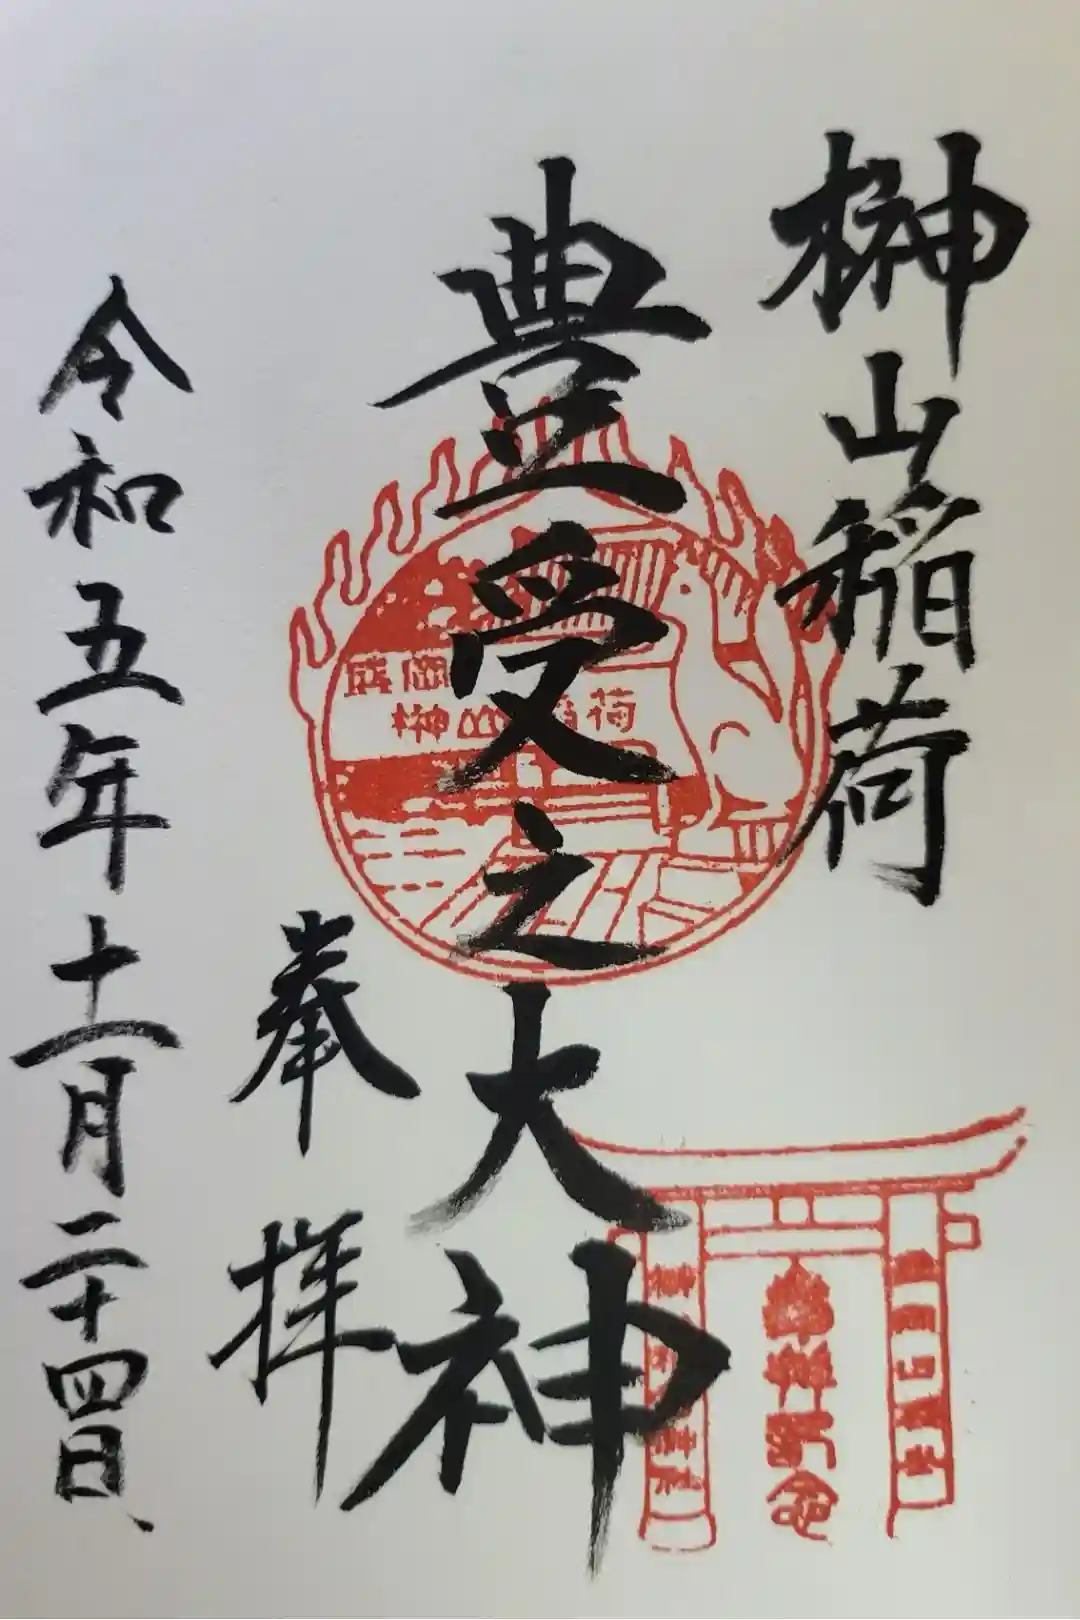 榊山稲荷
豊受之大神
奉拝
令和五年十一月二十四日、
盛岡
榊山稲荷
参拝記念